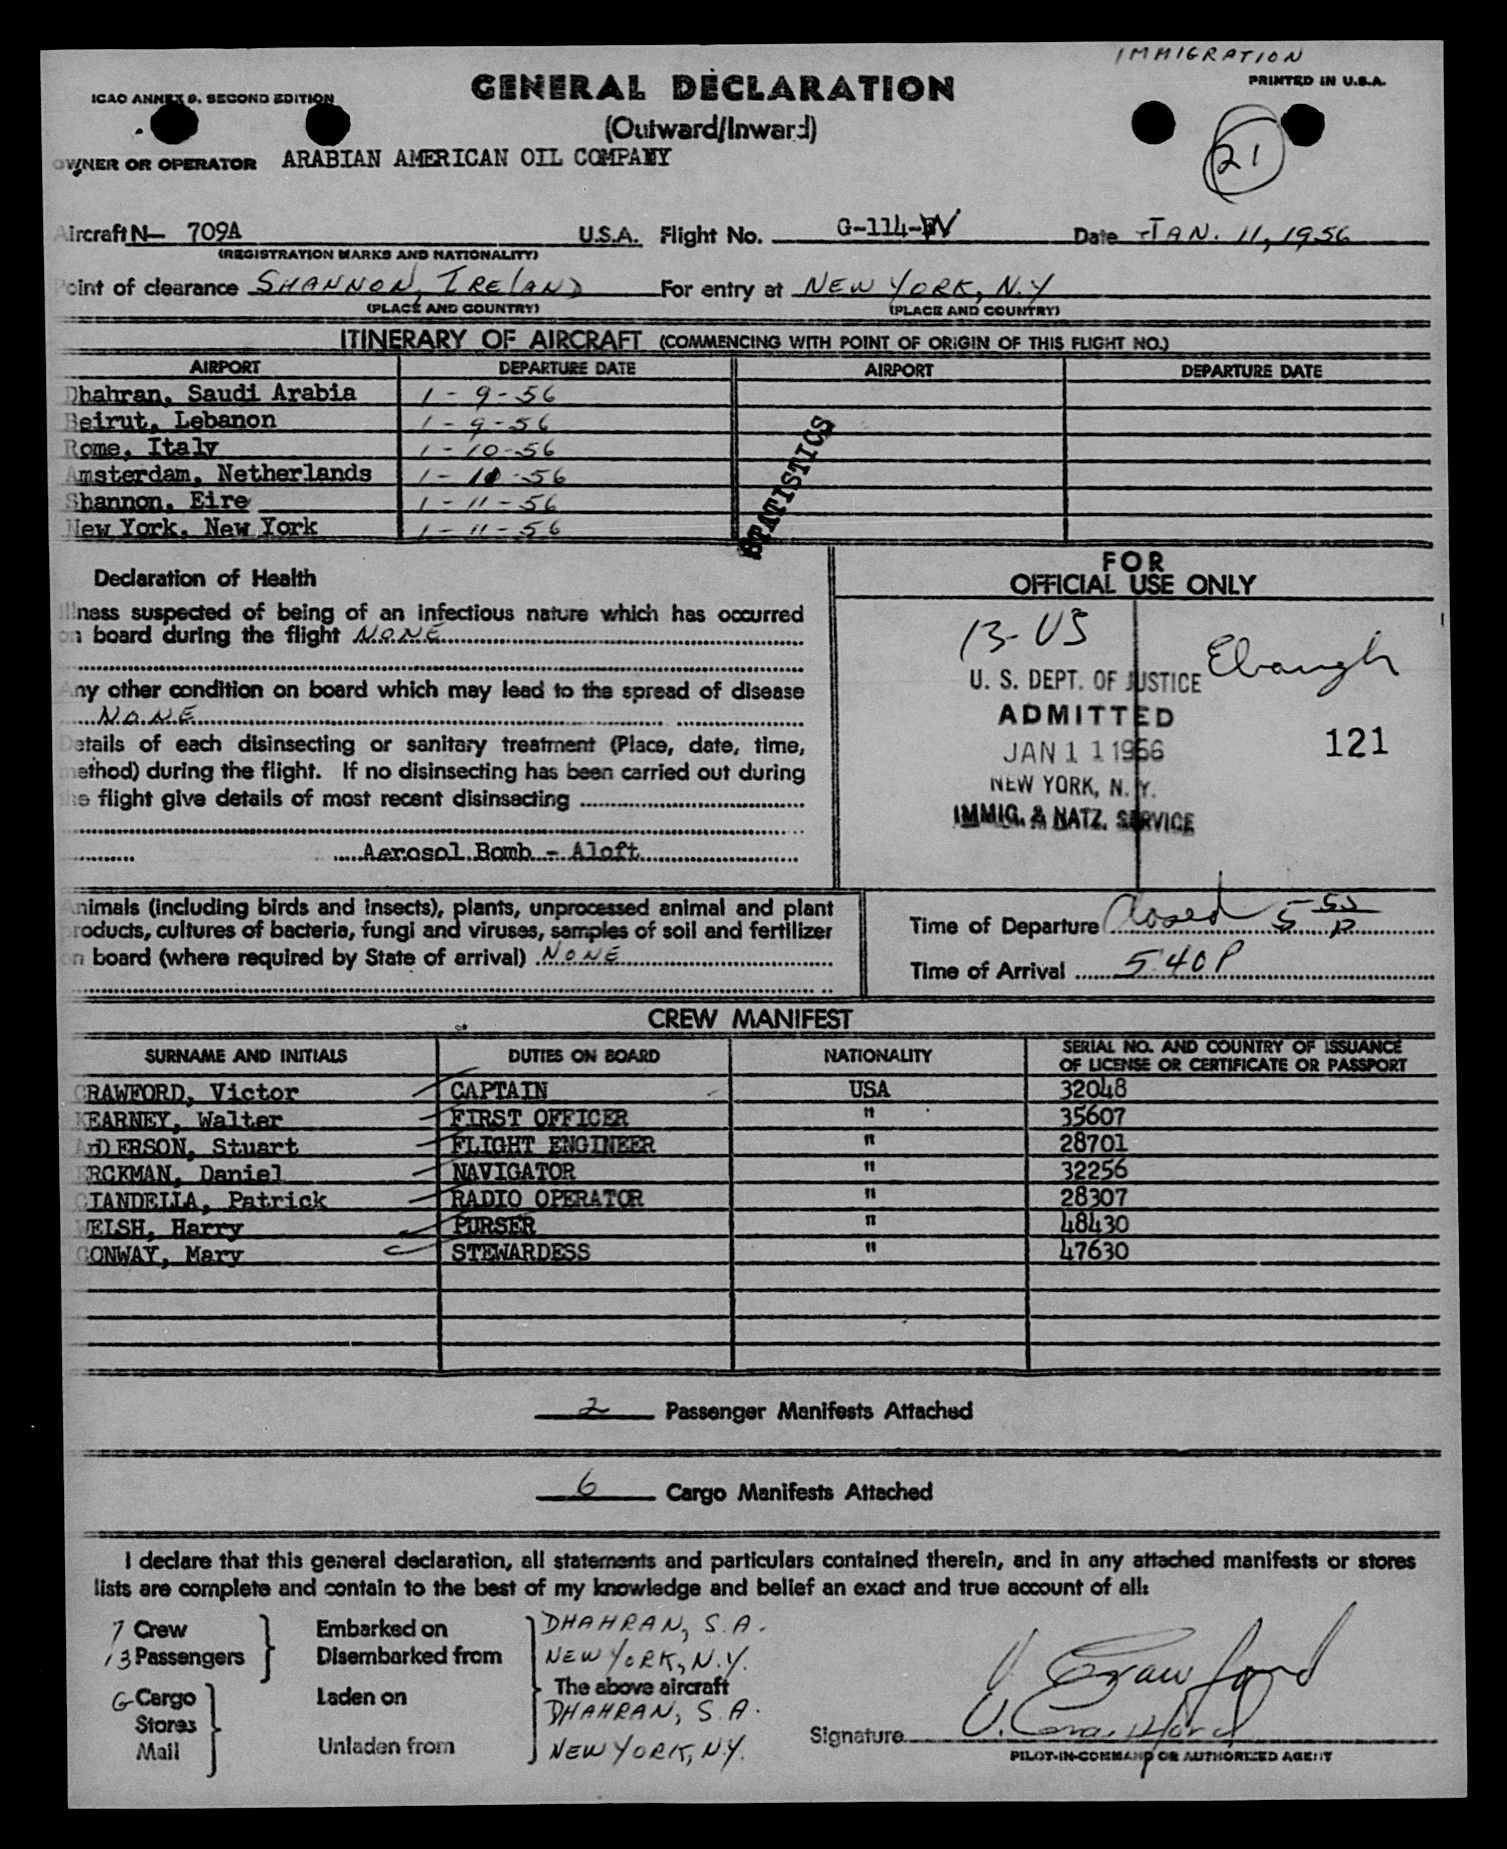 IMMIGRATION
ICAO ANNEX 9. SECOND EDITION
GENERAL DECLARATION
PRINTED IN U.S.A.
(Outward/Inward)
21
OWNER OR OPERATOR ARABIAN AMERICAN OIL COMPANY
Aircraft N— 709A U.S.A. Flight No. G-114-W Date JAN. 11, 1956
(REGISTRATION MARKS AND NATIONALITY)
Point of clearance SHANNON, IRELAND For entry at NEW YORK, N.Y
(PLACE AND COUNTRY) (PLACE AND COUNTRY)
ITINERARY OF AIRCRAFT (COMMENCING WITH POINT OF ORIGIN OF THIS FLIGHT NO.)
AIRPORT DEPARTURE DATE AIRPORT DEPARTURE DATE
Dhahran, Saudi Arabia 1-9-56
Beirut, Lebanon 1-9-56
Rome, Italy 1-10-56
Amsterdam, Netherlands 1-10-56
Shannon, Eire 1-11-56
New York, New York 1-11-56
STATISTICS
Declaration of Health
Illness suspected of being of an infectious nature which has occurred
on board during the flight NONE
Any other condition on board which may lead to the spread of disease
NONE
Details of each disinsecting or sanitary treatment (Place, date, time,
method) during the flight. If no disinsecting has been carried out during
the flight give details of most recent disinsecting
Aerosol Bomb - Aloft
FOR
OFFICIAL USE ONLY
13-US
Ebaugh
U. S. DEPT. OF JUSTICE
ADMITTED
JAN 11 1956
121
NEW YORK, N. Y.
IMMIG. & NATZ. SERVICE
Animals (including birds and insects), plants, unprocessed animal and plant
products, cultures of bacteria, fungi and viruses, samples of soil and fertilizer
on board (where required by State of arrival) NONE
Time of Departure Closed 5 55 P
Time of Arrival 5 40 P
CREW MANIFEST
SURNAME AND INITIALS DUTIES ON BOARD NATIONALITY SERIAL NO. AND COUNTRY OF ISSUANCE
OF LICENSE OR CERTIFICATE OR PASSPORT
CRAWFORD, Victor CAPTAIN USA 32048
KEARNEY, Walter FIRST OFFICER " 35607
AnDERSON, Stuart FLIGHT ENGINEER " 28701
ERCKMAN, Daniel NAVIGATOR " 32256
CIANDELLA, Patrick RADIO OPERATOR " 28307
WELSH, Harry PURSER " 48430
CONWAY, Mary STEWARDESS " 47630
2 Passenger Manifests Attached
6 Cargo Manifests Attached
I declare that this general declaration, all statements and particulars contained therein, and in any attached manifests or stores
lists are complete and contain to the best of my knowledge and belief an exact and true account of all:
7 Crew Embarked on DHAHRAN, S.A.
13 Passengers Disembarked from NEW YORK, N.Y.
The above aircraft
6 Cargo Laden on DHAHRAN, S.A.
Stores
Mail Unladen from NEW YORK, N.Y.
V. Crawford
Signature V. Crawford
PILOT-IN-COMMAND OR AUTHORIZED AGENT